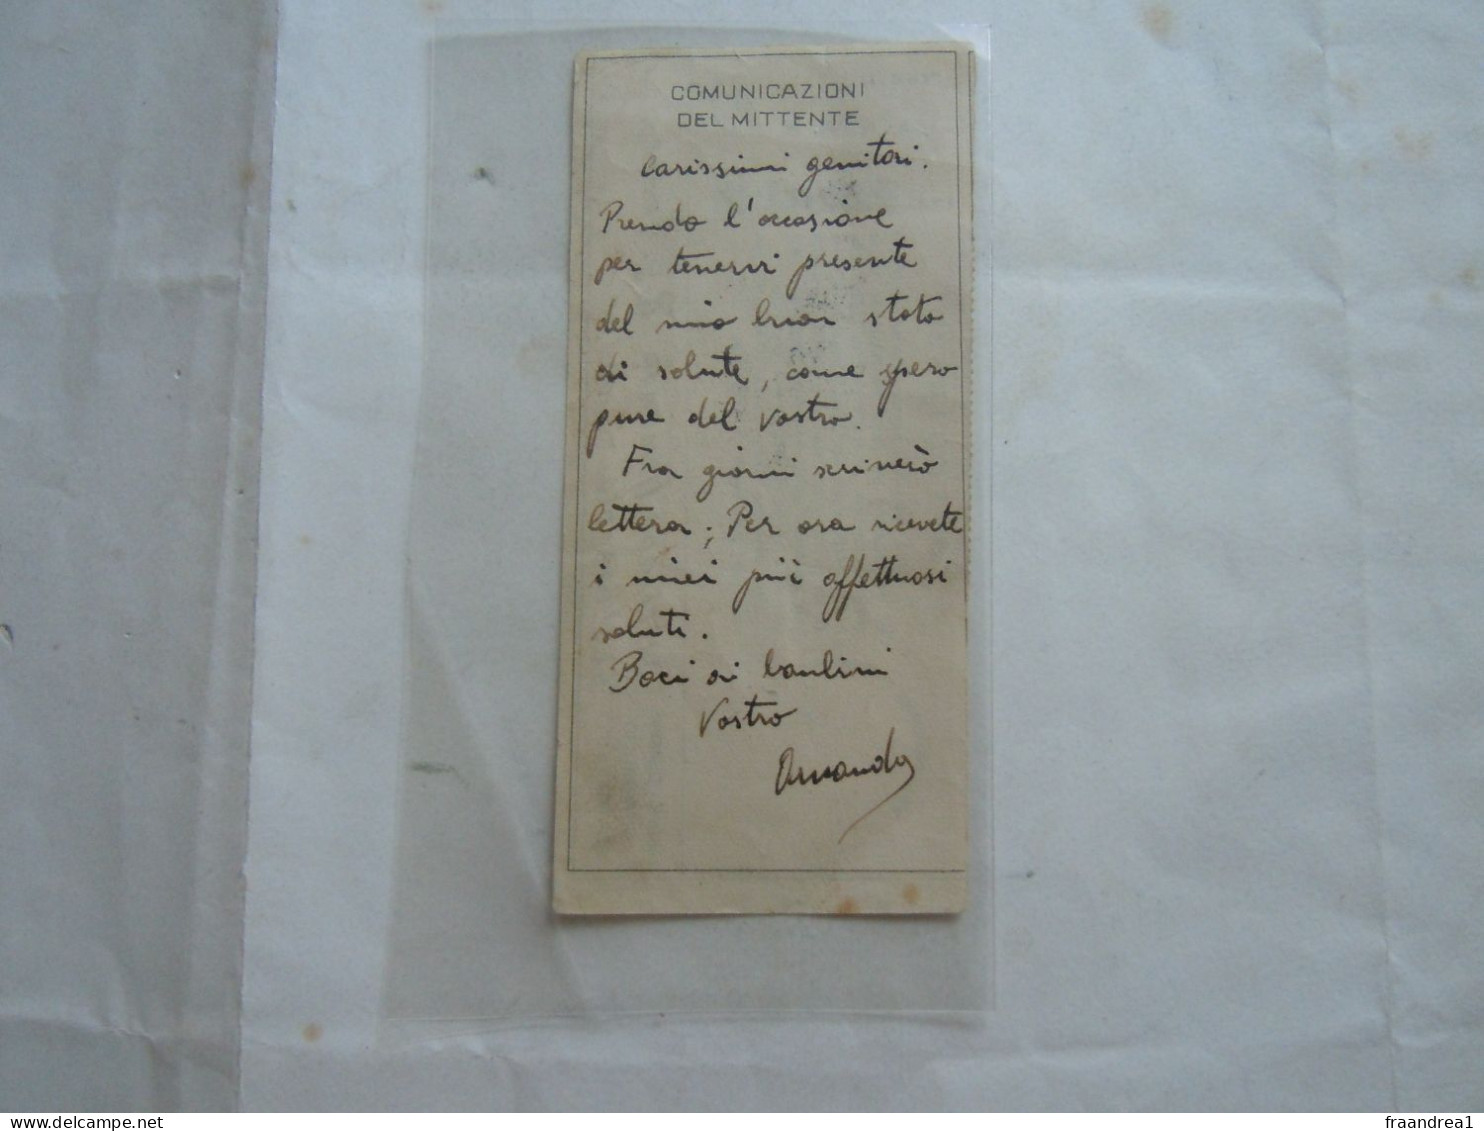 COMUNICAZIONI
DEL MITTENTE
Carissimi genitori.
Prendo l'occasione
per tenervi presente
del mio buon stato
di salute, come spero
pure del vostro.
Fra giorni scriverò
lettera; Per ora ricevete
i miei più affettuosi
saluti.
Baci ai bambini
Vostro
Armando
delcampe.net
fraandrea1